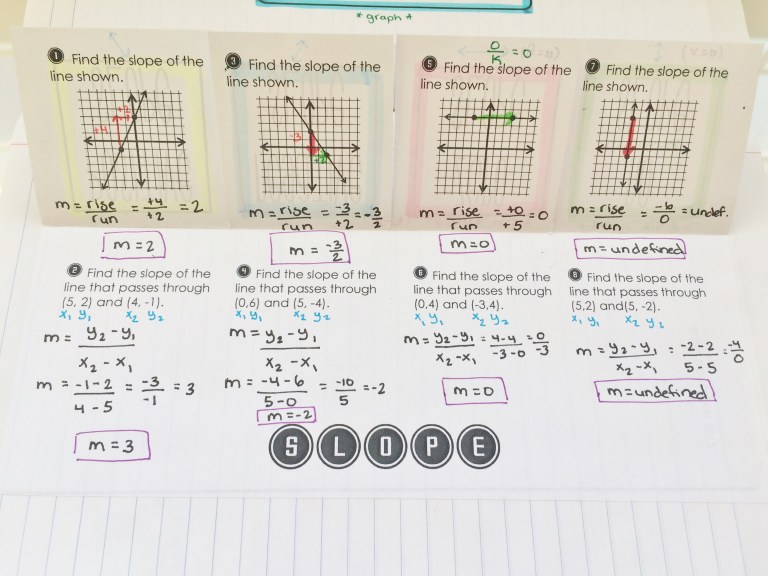 * graph *
0/K = 0
1 Find the slope of the
line shown.
+2
+4
m = rise/run = +4/+2 = 2
m = 2
3 Find the slope of the
line shown.
-3
+2
m = rise/run = -3/+2 = -3/2
m = -3/2
5 Find the slope of the
line shown.
m = rise/run = +0/+5 = 0
m = 0
7 Find the slope of the
line shown.
m = rise/run = -6/0 = undef.
m = undefined
2 Find the slope of the
line that passes through
(5, 2) and (4, -1).
x₁ y₁ x₂ y₂
m = y₂ - y₁/x₂ - x₁
m = -1 - 2/4 - 5 = -3/-1 = 3
m = 3
4 Find the slope of the
line that passes through
(0,6) and (5, -4).
x₁ y₁ x₂ y₂
m = y₂ - y₁/x₂ - x₁
m = -4 - 6/5 - 0 = -10/5 = -2
m = -2
6 Find the slope of the
line that passes through
(0,4) and (-3,4).
x₁ y₁ x₂ y₂
m = y₂ - y₁/x₂ - x₁ = 4 - 4/-3 - 0 = 0/-3
m = 0
8 Find the slope of the
line that passes through
(5,2) and(5, -2).
x₁ y₁ x₂ y₂
m = y₂ - y₁/x₂ - x₁ = -2 - 2/5 - 5 = -4/0
m = undefined
S L O P E